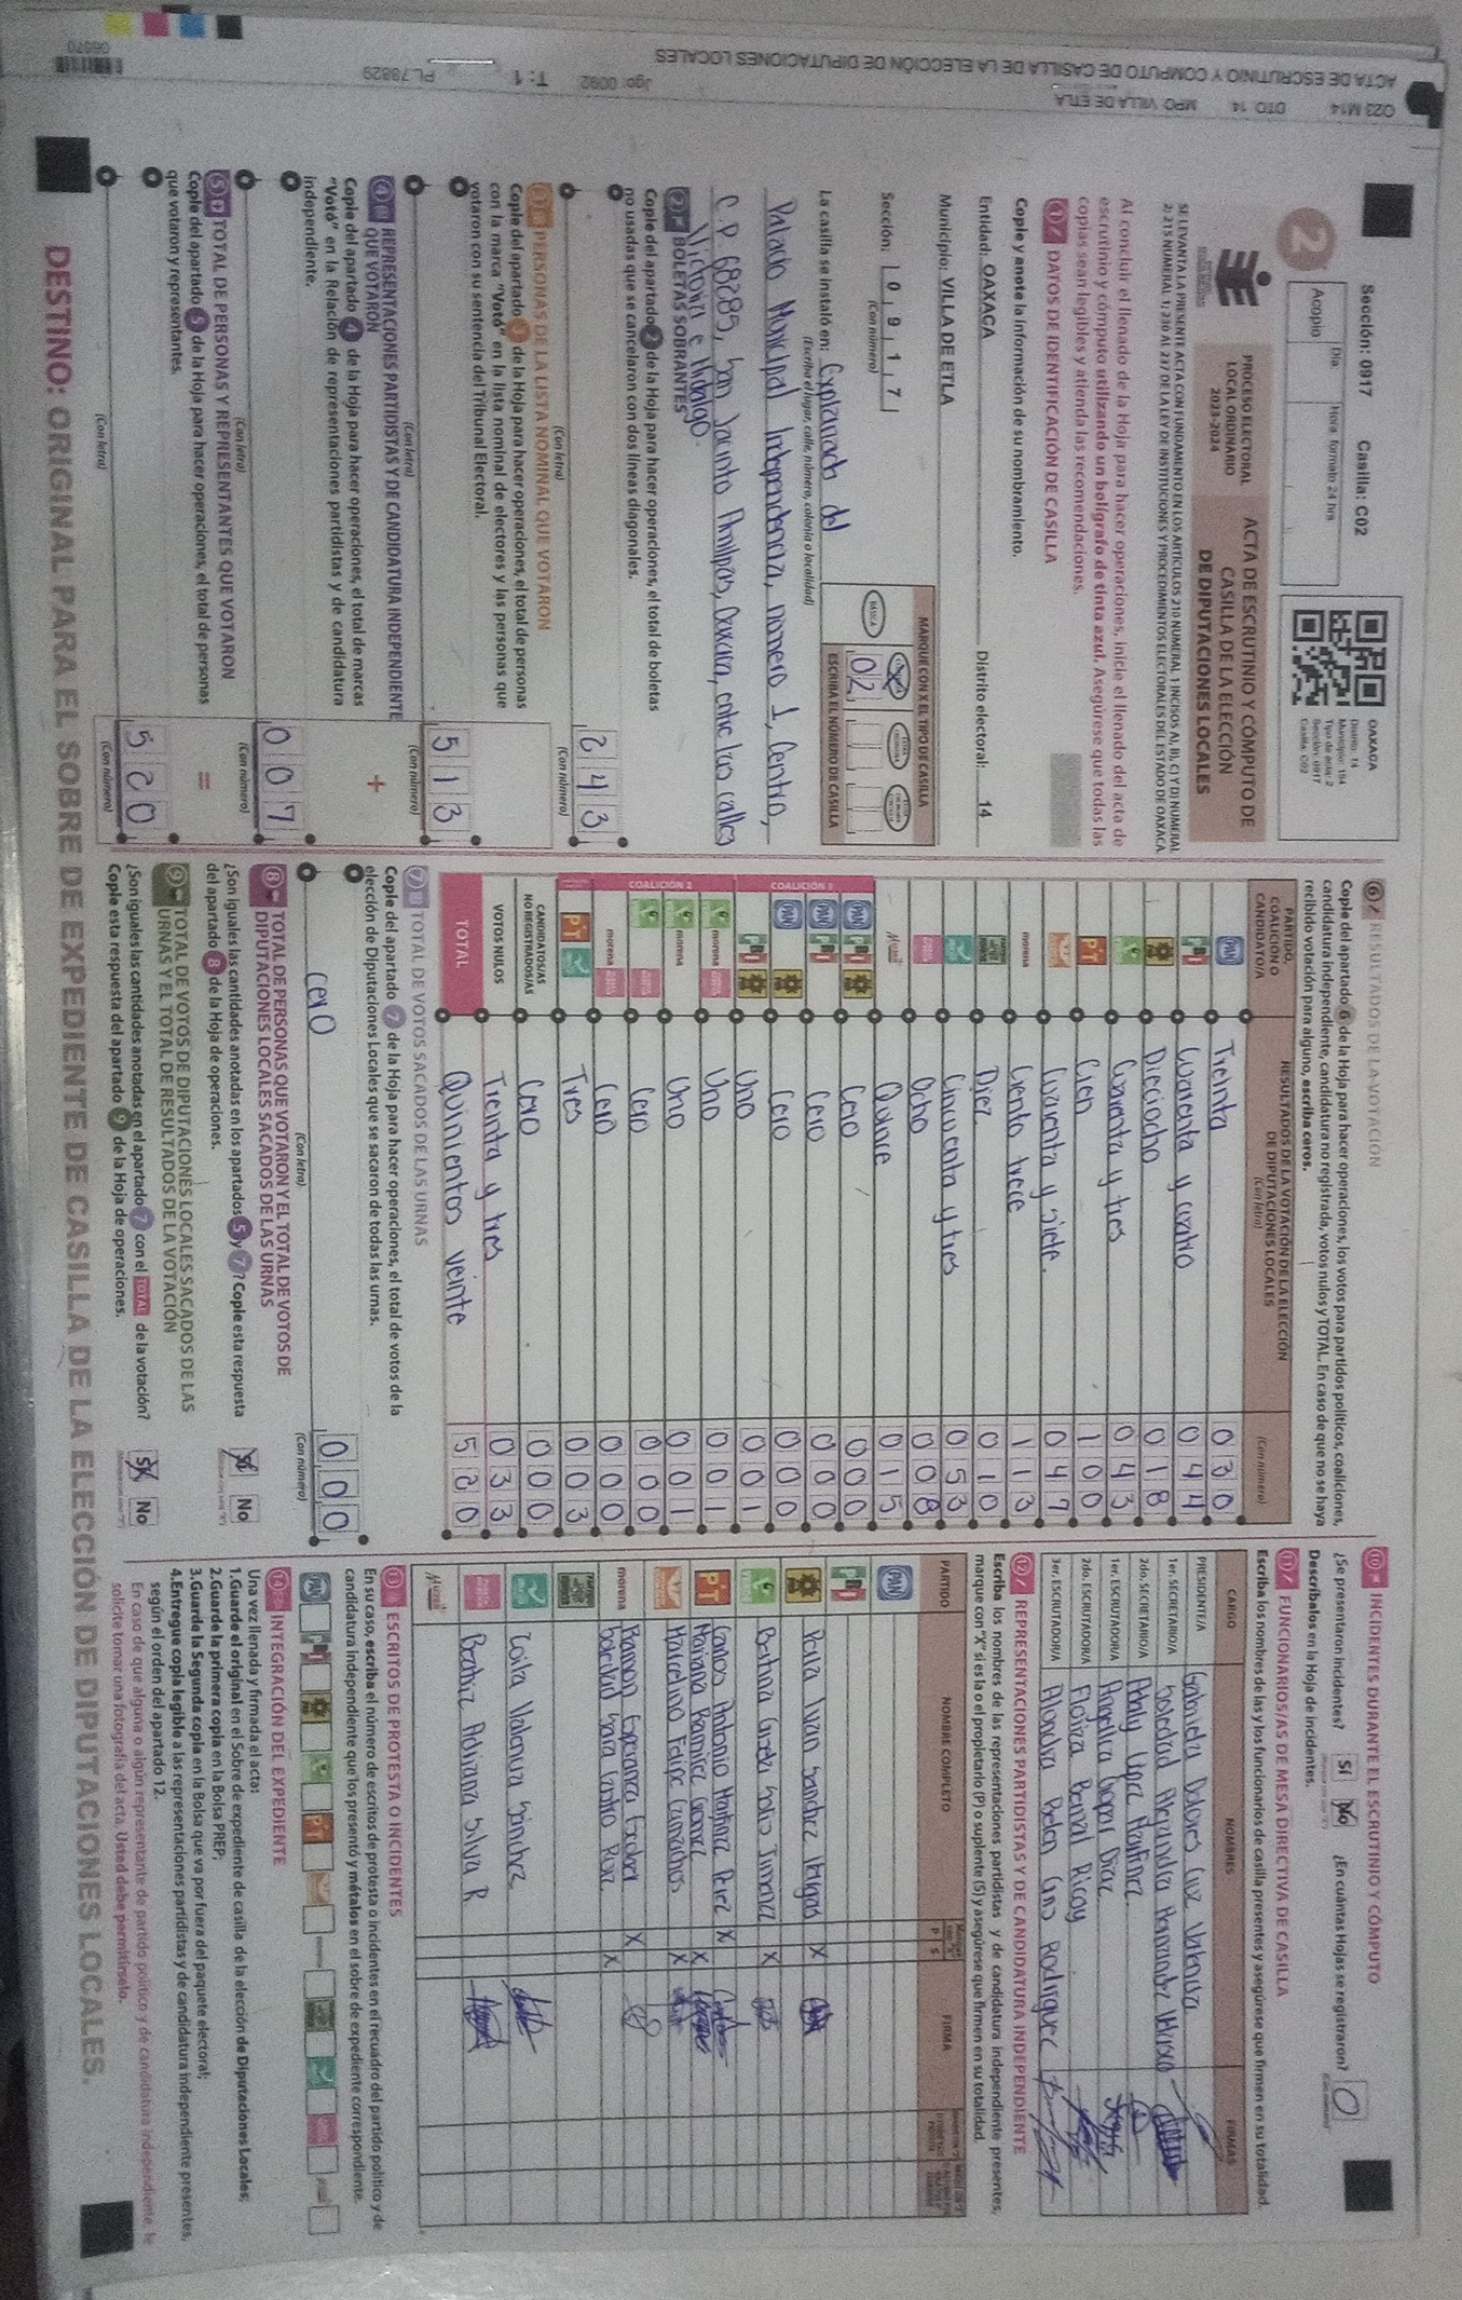 O23 M14 DTO 14 MPO VILLA DE ETLA
ACTA DE ESCRUTINIO Y COMPUTO DE CASILLA DE LA ELECCIÓN DE DIPUTACIONES LOCALES
Jgo: 0092 T: 1 PL 78829
06570
Sección: 0917 Casilla: C02
2
Acopio
Día
Hora formato 24 hrs
OAXACA
Distrito: 14
Tipo de acta: 2
Sección: 0917
Casilla: C02
PROCESO ELECTORAL
LOCAL ORDINARIO
2023-2024
ACTA DE ESCRUTINIO Y CÓMPUTO DE
CASILLA DE LA ELECCIÓN
DE DIPUTACIONES LOCALES
SE LEVANTA LA PRESENTE ACTA CON FUNDAMENTO EN LOS ARTÍCULOS 210 NUMERAL 1 INCISOS A), B), C) Y D) NUMERAL
2; 215 NUMERAL 1; 230 AL 237 DE LA LEY DE INSTITUCIONES Y PROCEDIMIENTOS ELECTORALES DEL ESTADO DE OAXACA.
Al concluir el llenado de la Hoja para hacer operaciones, inicie el llenado del acta de
escrutinio y cómputo utilizando un bolígrafo de tinta azul. Asegúrese que todas las
copias sean legibles y atienda las recomendaciones.
1 DATOS DE IDENTIFICACIÓN DE CASILLA
Copie y anote la información de su nombramiento.
Entidad: OAXACA Distrito electoral: 14
Municipio: VILLA DE ETLA
Sección: 0 9 1 7
(Con número)
MARQUE CON X EL TIPO DE CASILLA
BÁSICA
ESCRIBA EL NÚMERO DE CASILLA
02
La casilla se instaló en: Explanada del
(Escriba el lugar, calle, número, colonia o localidad)
Palacio Municipal Independencia, número 1, Centro,
C.P. 68285, San Jacinto Amilpas, Oaxaca, entre las calles
Victoria e Hidalgo.
2 BOLETAS SOBRANTES
Copie del apartado 2 de la Hoja para hacer operaciones, el total de boletas
no usadas que se cancelaron con dos líneas diagonales.
2 4 3
(Con letra) (Con número)
3 PERSONAS DE LA LISTA NOMINAL QUE VOTARON
Copie del apartado 3 de la Hoja para hacer operaciones, el total de personas
con la marca "Votó" en la lista nominal de electores y las personas que
votaron con su sentencia del Tribunal Electoral.
5 1 3
(Con letra) (Con número)
4 REPRESENTACIONES PARTIDISTAS Y DE CANDIDATURA INDEPENDIENTE
QUE VOTARON
+
Copie del apartado 4 de la Hoja para hacer operaciones, el total de marcas
"Votó" en la Relación de representaciones partidistas y de candidatura
independiente.
0 0 7
(Con letra) (Con número)
5 TOTAL DE PERSONAS Y REPRESENTANTES QUE VOTARON
=
Copie del apartado 5 de la Hoja para hacer operaciones, el total de personas
que votaron y representantes.
5 2 0
(Con letra) (Con número)
6 RESULTADOS DE LA VOTACIÓN
Copie del apartado 6 de la Hoja para hacer operaciones, los votos para partidos políticos, coaliciones,
candidatura independiente, candidatura no registrada, votos nulos y TOTAL. En caso de que no se haya
recibido votación para alguno, escriba ceros.
PARTIDO,
COALICIÓN O
CANDIDATO/A
RESULTADOS DE LA VOTACIÓN DE LA ELECCIÓN
DE DIPUTACIONES LOCALES
(Con letra) (Con número)
PAN Treinta 030
PRI Cuarenta y cuatro 044
Dieciocho 018
Cuarenta y tres 043
PT Cien 100
Cuarenta y siete. 047
morena Ciento trece 113
Diez 010
Cincuenta y tres 053
Ocho 008
Quince 015
COALICIÓN 1
PAN PRI Cero 000
PAN PRI Cero 000
PAN Cero 000
PRI Uno 001
COALICIÓN 2
morena Uno 001
morena Uno 001
Cero 000
morena Cero 000
PT Tres 003
CANDIDATOS/AS
NO REGISTRADOS/AS Cero 000
VOTOS NULOS Treinta y tres 033
TOTAL Quinientos veinte 520
7 TOTAL DE VOTOS SACADOS DE LAS URNAS
Copie del apartado 7 de la Hoja para hacer operaciones, el total de votos de la
elección de Diputaciones Locales que se sacaron de todas las urnas.
Cero 0 0 0
(Con letra) (Con número)
8 TOTAL DE PERSONAS QUE VOTARON Y EL TOTAL DE VOTOS DE
DIPUTACIONES LOCALES SACADOS DE LAS URNAS
¿Son iguales las cantidades anotadas en los apartados 5 y 7? Copie esta respuesta
del apartado 8 de la Hoja de operaciones.
Sí No
9 TOTAL DE VOTOS DE DIPUTACIONES LOCALES SACADOS DE LAS
URNAS Y EL TOTAL DE RESULTADOS DE LA VOTACIÓN
¿Son iguales las cantidades anotadas en el apartado 7 con el TOTAL de la votación?
Copie esta respuesta del apartado 9 de la Hoja de operaciones.
Sí No
10 INCIDENTES DURANTE EL ESCRUTINIO Y CÓMPUTO
¿Se presentaron incidentes? Sí No ¿En cuántas Hojas se registraron? 0
Descríbalos en la Hoja de Incidentes.
11 FUNCIONARIOS/AS DE MESA DIRECTIVA DE CASILLA
Escriba los nombres de las y los funcionarios de casilla presentes y asegúrese que firmen en su totalidad.
CARGO NOMBRES FIRMAS
PRESIDENTE/A Gabriela Dolores Cruz Valencia
1er. SECRETARIO/A Soledad Alejandra Hernández
2do. SECRETARIO/A López Martínez
1er. ESCRUTADOR/A Angelica Gopar Diaz
2do. ESCRUTADOR/A Bernal Ricoy
3er. ESCRUTADOR/A Alondra Belen Rodriguez
12 REPRESENTACIONES PARTIDISTAS Y DE CANDIDATURA INDEPENDIENTE
Escriba los nombres de las representaciones partidistas y de candidatura independiente presentes,
marque con "X" si es la o el propietario (P) o suplente (S) y asegúrese que firmen en su totalidad.
PARTIDO NOMBRE COMPLETO P S FIRMA
PAN
PRI
Perla Ivan Sanchez Vargas X
Solis Jimenez X
PT Carlos Antonio Martinez Perez X
Mariana Ramirez Gomez X
Marcelino Felipe Camachos X
morena Ramon Esperanza Escobar X
Soledad Sara Castro Ruiz. X
Zoila Valencia Sánchez
Beatriz Adriana Silva R
13 ESCRITOS DE PROTESTA O INCIDENTES
En su caso, escriba el número de escritos de protesta o incidentes en el recuadro del partido político y de
candidatura independiente que los presentó y métalos en el sobre de expediente correspondiente.
PAN PRI PT
14 INTEGRACIÓN DEL EXPEDIENTE
Una vez llenada y firmada el acta:
1.Guarde el original en el Sobre de expediente de casilla de la elección de Diputaciones Locales;
2.Guarde la primera copia en la Bolsa PREP;
3.Guarde la Segunda copia en la Bolsa que va por fuera del paquete electoral;
4.Entregue copia legible a las representaciones partidistas y de candidatura independiente presentes,
según el orden del apartado 12.
En caso de que alguna o algún representante de partido político y de candidatura independiente, le
solicite tomar una fotografía del acta. Usted debe permitírselo.
DESTINO: ORIGINAL PARA EL SOBRE DE EXPEDIENTE DE CASILLA DE LA ELECCIÓN DE DIPUTACIONES LOCALES.